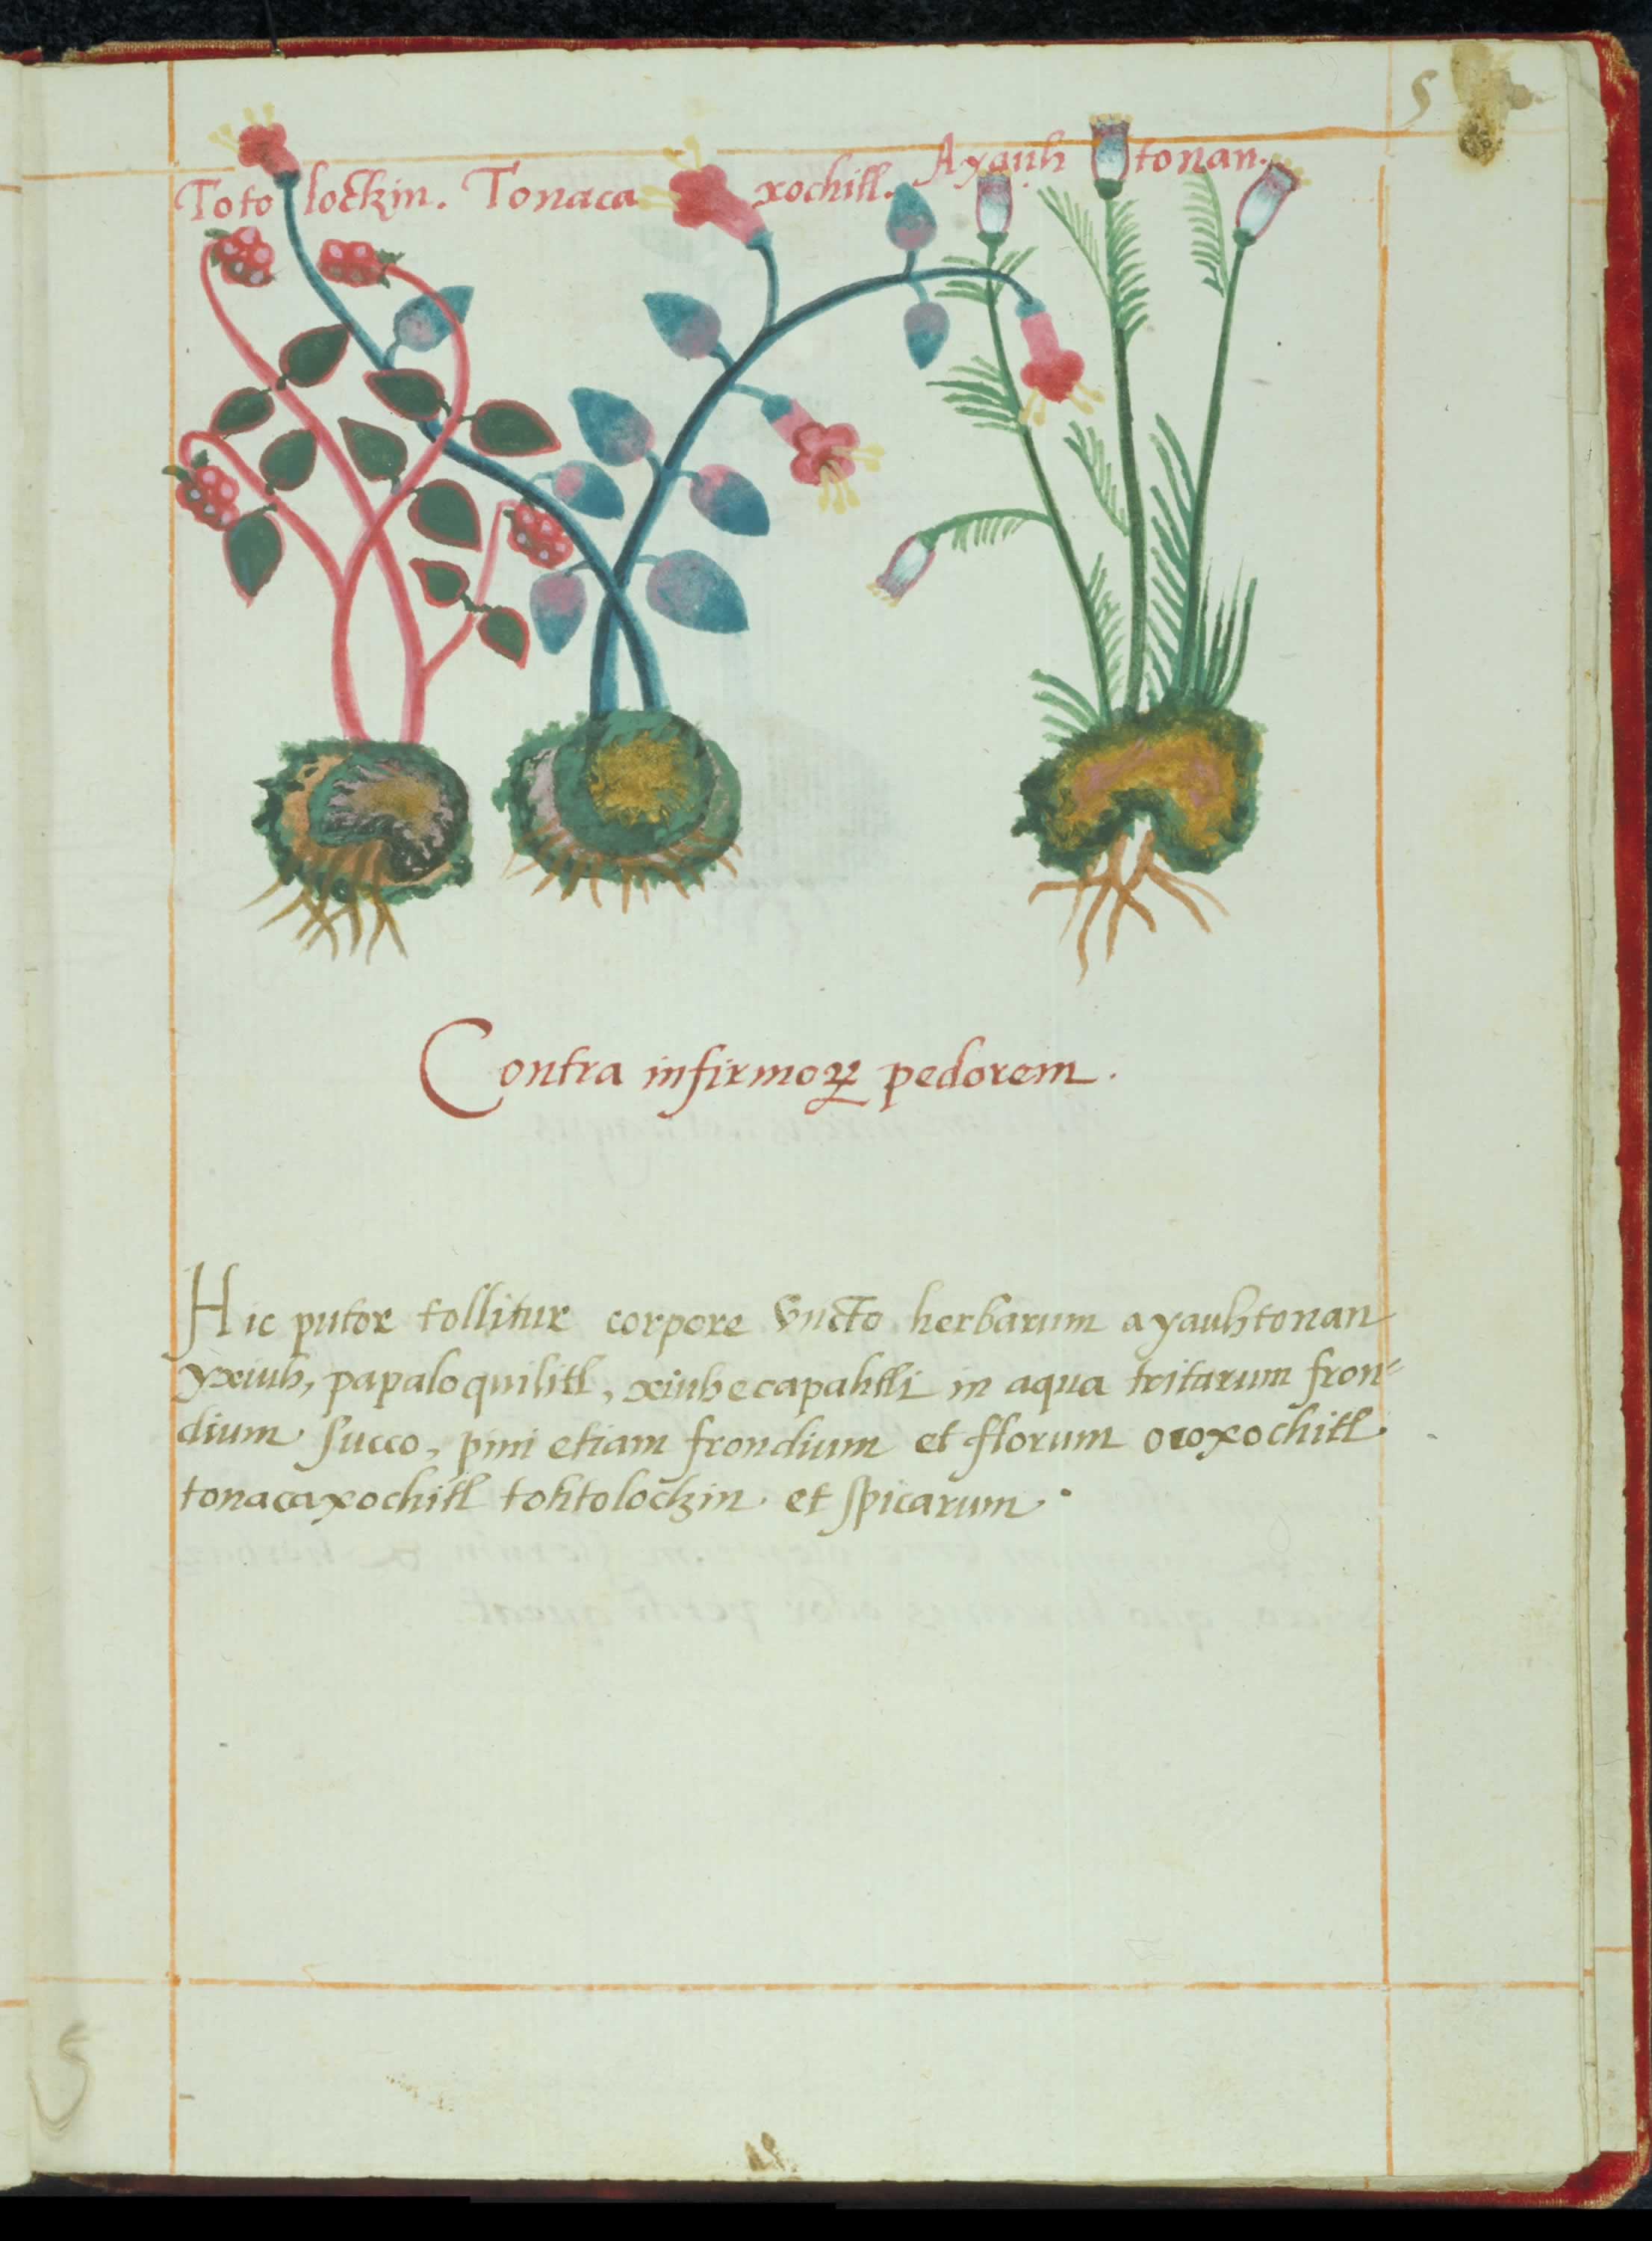 5
Totolockzin. Tonacaxochitl. Ayauhtonan.
Contra infirmoꝝ pedorem.
Hic putor tollitur corpore vncto herbarum ayauhtonan
yxiuh, papaloquilitl, xiuhecapahtli in aqua tritarum fron⸗
dium succo, pini etiam frondium et florum ocoxochitl
tonacaxochitl tohtolockzin et spicarum.
5